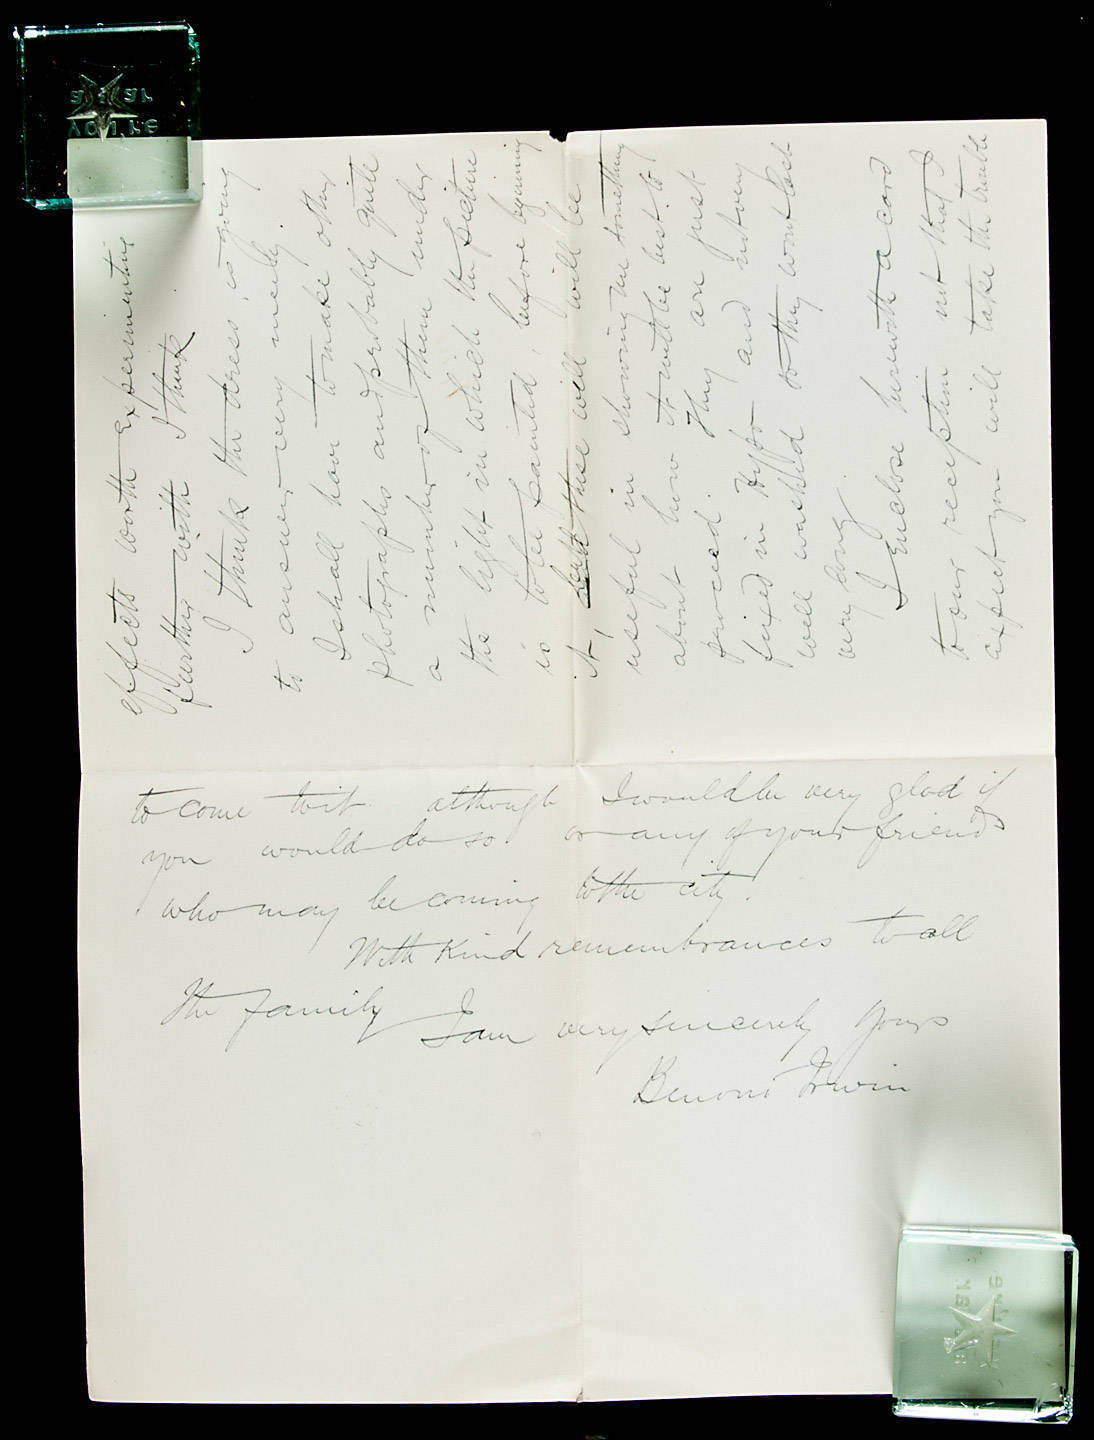 effects worth experimenting
further with I think
I think the dress is going
to answer very nicely.
I shall have to make other
photographs and probably quite
a number of them under
the light in which the picture
is to be painted, before beginning
it, these will be
useful in showing me something
about how it will be best to
proceed. They are just
fixed in Hypo and not very
well washed so they won't last
very long.
I enclose herewith a card
to our reception not that I
expect you will take the trouble
to come to it although I would be very glad if
you would do so or any of your friends
who may be coming to the city.
With kind remembrances to all
the family
I am very sincerely yours
Benoni Irwin